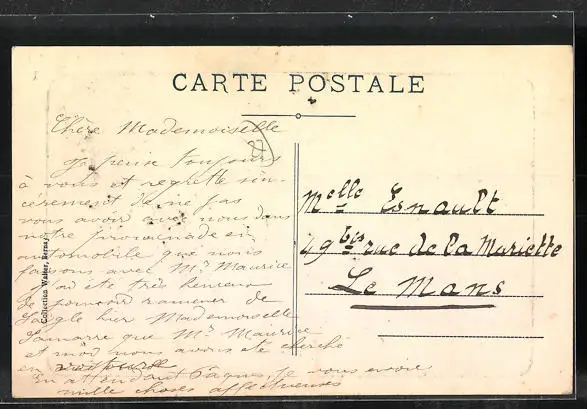 CARTE POSTALE
Chère Mademoiselle
Je pense toujours
à vous et regrette sin-
cèrement de ne pas
vous avoir avec nous dans
notre promenade en
automobile que nous
faisons avec Mr Maurice
J'ai été très heureux
de pouvoir ramener de
Laigle hier Mademoiselle
Lamarre que Mr Maurice
et moi nous avons été cherché
en
En attendant Pâques, je vous envoie
mille choses affectueuses
27
Melle Esnault
49 bis rue de la Mariette
Le Mans
Collection Walter, Bernay